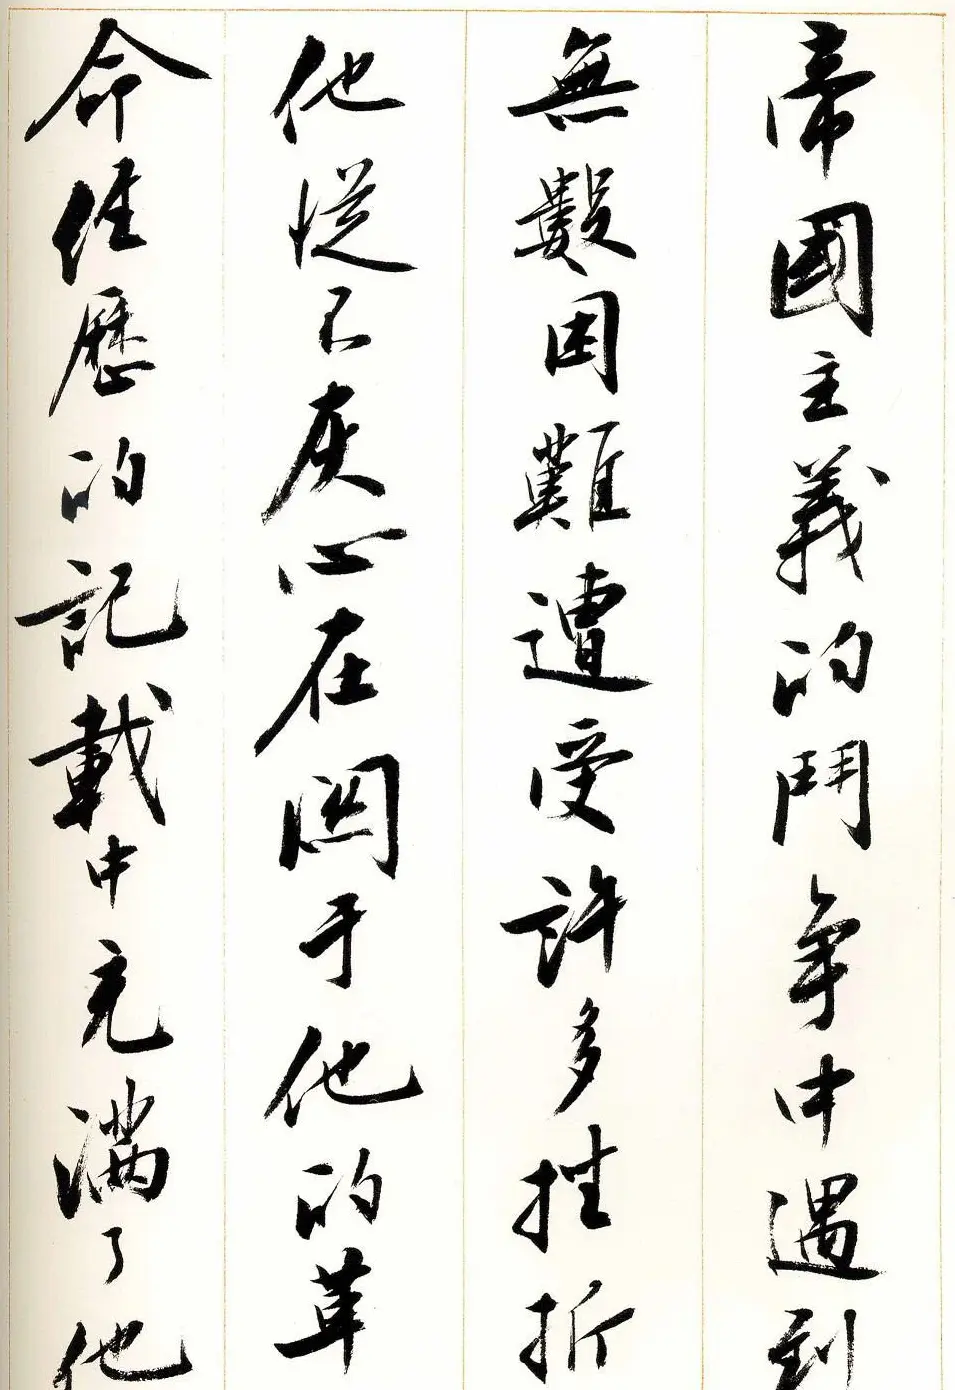 帝國主義的鬥争中遇到
無數困難遭受許多挫折
他從不灰心在関于他的革
命經歷的記載中充滿了他